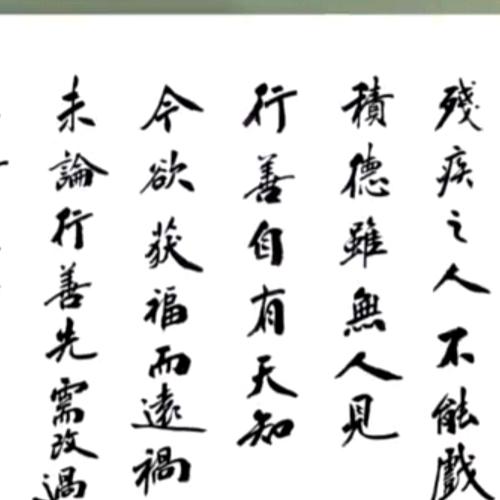 殘疾之人不能戲
積德雖無人見
行善自有天知
今欲获福而遠禍
未論行善先需改過